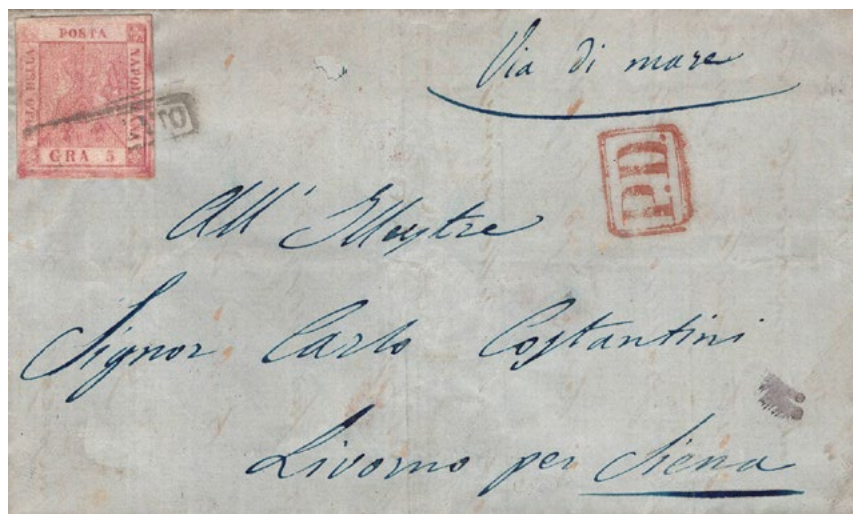 POSTA
BOLLO DELLA
NAPOLETANA
GRA 5
Via di mare
P.D.
All' Illustre
Signor Carlo Costantini
Livorno per Siena